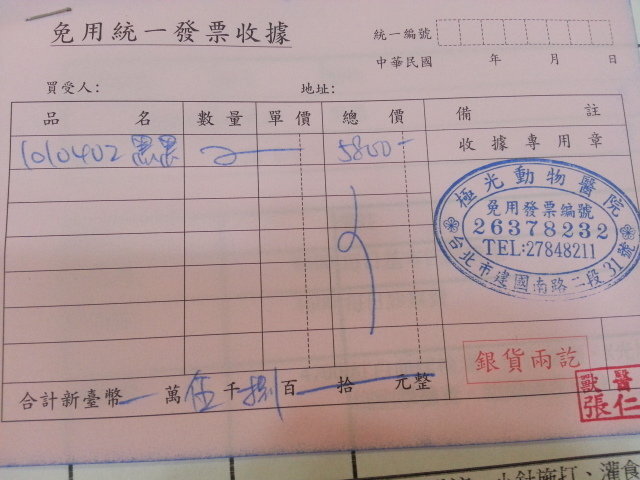 免用統一發票收據
統一編號
中華民國 年 月 日
買受人： 地址：
品 名 數量 單價 總 價 備 註
1010402 黑黑 5800-
收據專用章
極光動物醫院
免用發票編號
26378232
TEL:27848211
台北市建國南路二段31號
銀貨兩訖
獸醫
張仁
合計新臺幣 萬 伍 千 捌 百 拾 元整